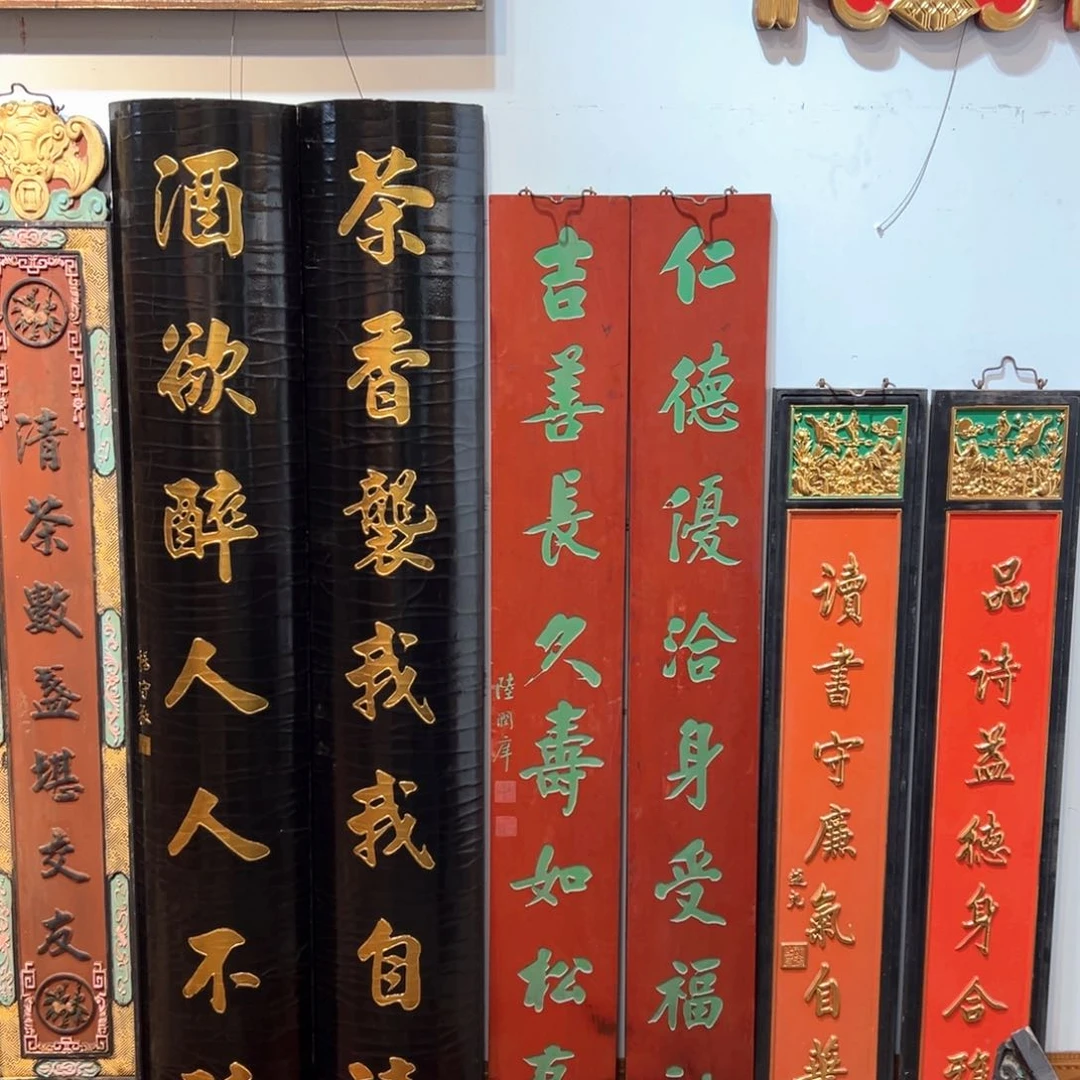 清茶數盞堪交友
酒欲醉人人不
茶香襲我我自清
吉善長久壽如松
陸潤庠
仁德優洽身受福
讀書守廉氣自華
品诗益德身合